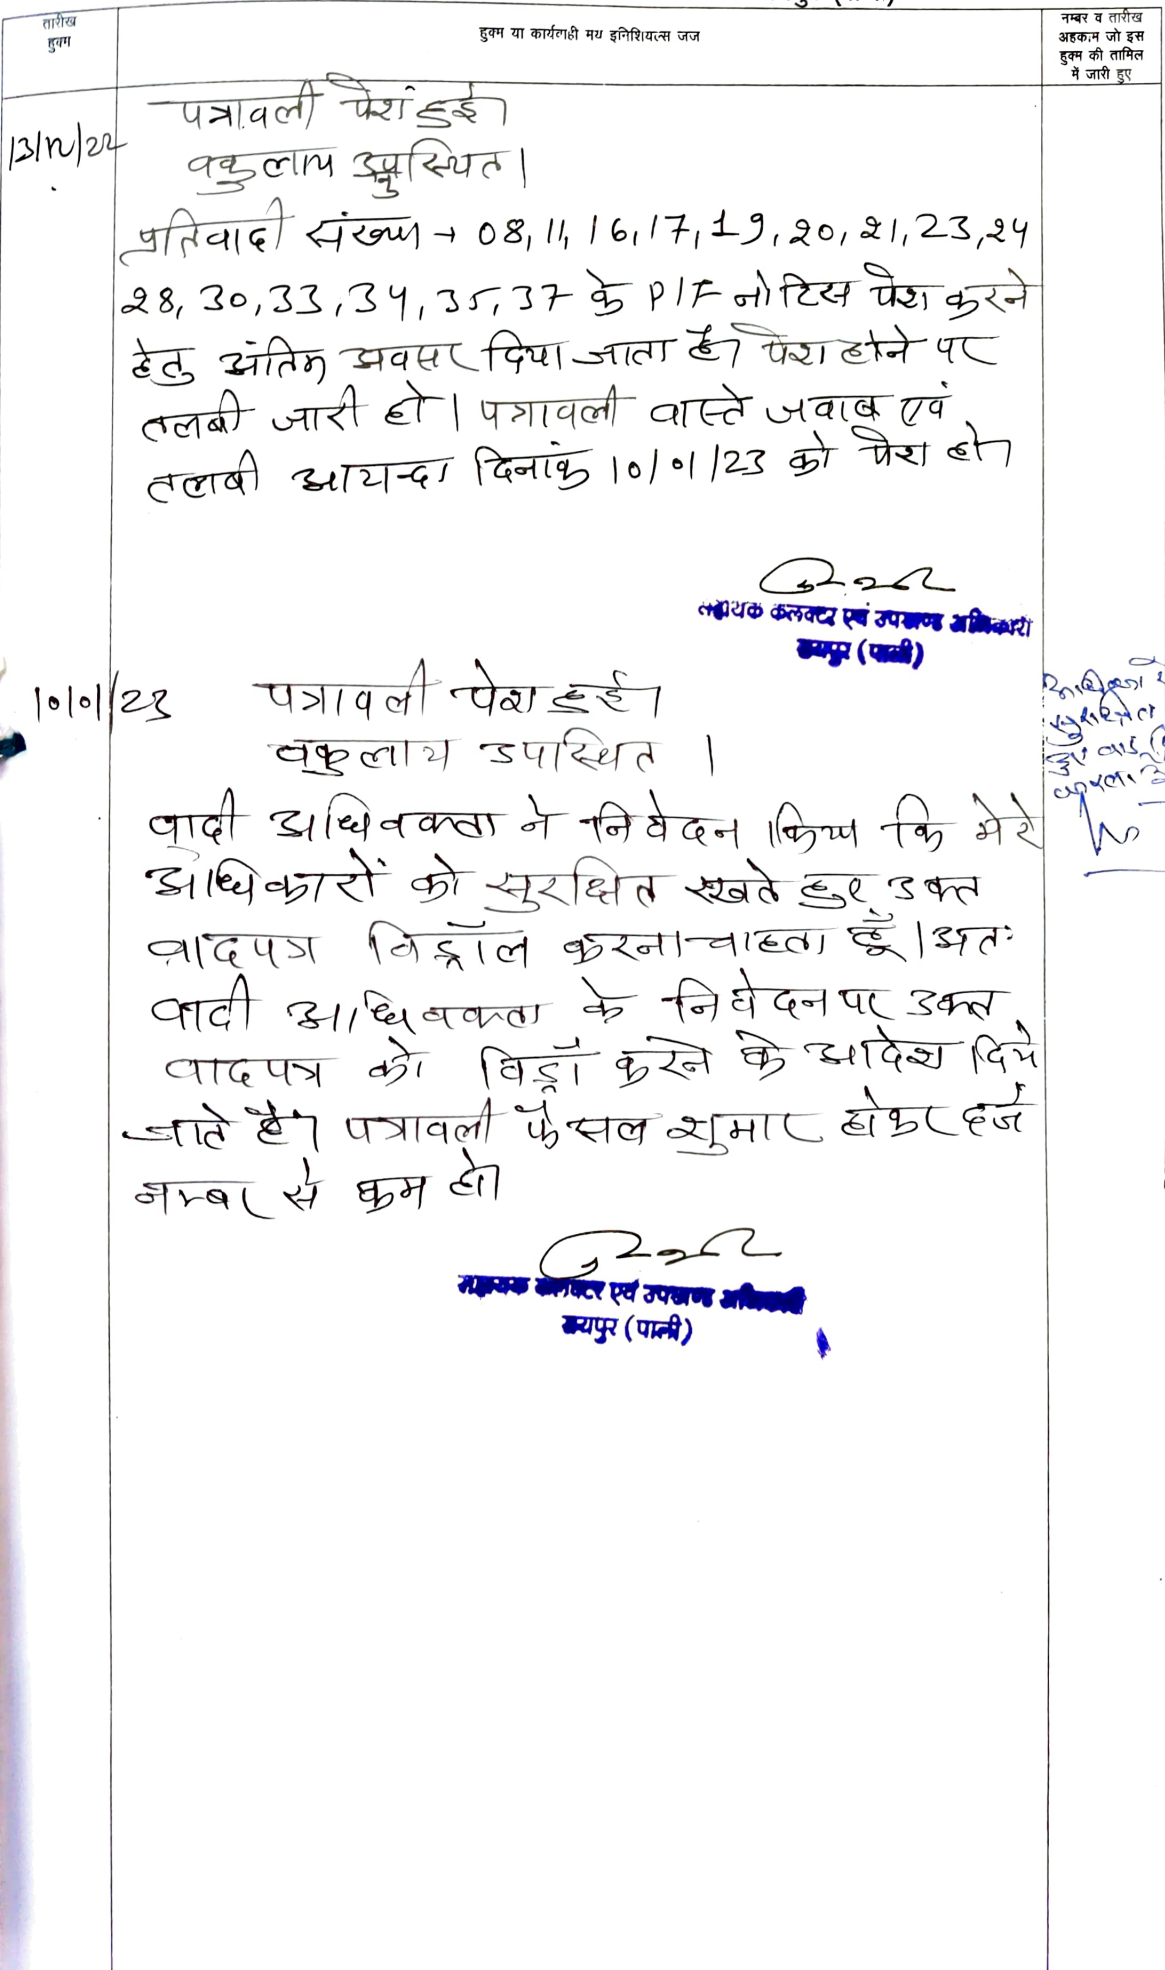 तारीख
हुक्म
हुक्म या कार्यवाही मय इनिशियल्स जज
नम्बर व तारीख
अहकाम जो इस
हुक्म की तामिल
में जारी हुए
13/12/22
पत्रावली पेश हुई।
वकुलाय उपस्थित।
प्रतिवादी संख्या → 08, 11, 16, 17, 19, 20, 21, 23, 24
28, 30, 33, 34, 35, 37 के P/F नोटिस पेश करने
हेतु अंतिम अवसर दिया जाता है। पेश होने पर
तलबी जारी हो। पत्रावली वास्ते जवाब एवं
तलबी आयन्दा दिनांक 10/01/23 को पेश हो।
सहायक कलक्टर एवं उपखण्ड अधिकारी
रायपुर (पाली)
10/01/23
पत्रावली पेश हुई।
वकुलाय उपस्थित।
वादी अधिवक्ता ने निवेदन किया कि मेरे
अधिकारों को सुरक्षित रखते हुए उक्त
वादपत्र विड्रॉल करना चाहता हूँ। अतः
वादी अधिवक्ता के निवेदन पर उक्त
वादपत्र को विड्रॉ करने के आदेश दिये
जाते है। पत्रावली फैसल शुमार होकर दर्ज
नम्बर से कम हो।
सहायक कलक्टर एवं उपखण्ड अधिकारी
रायपुर (पाली)